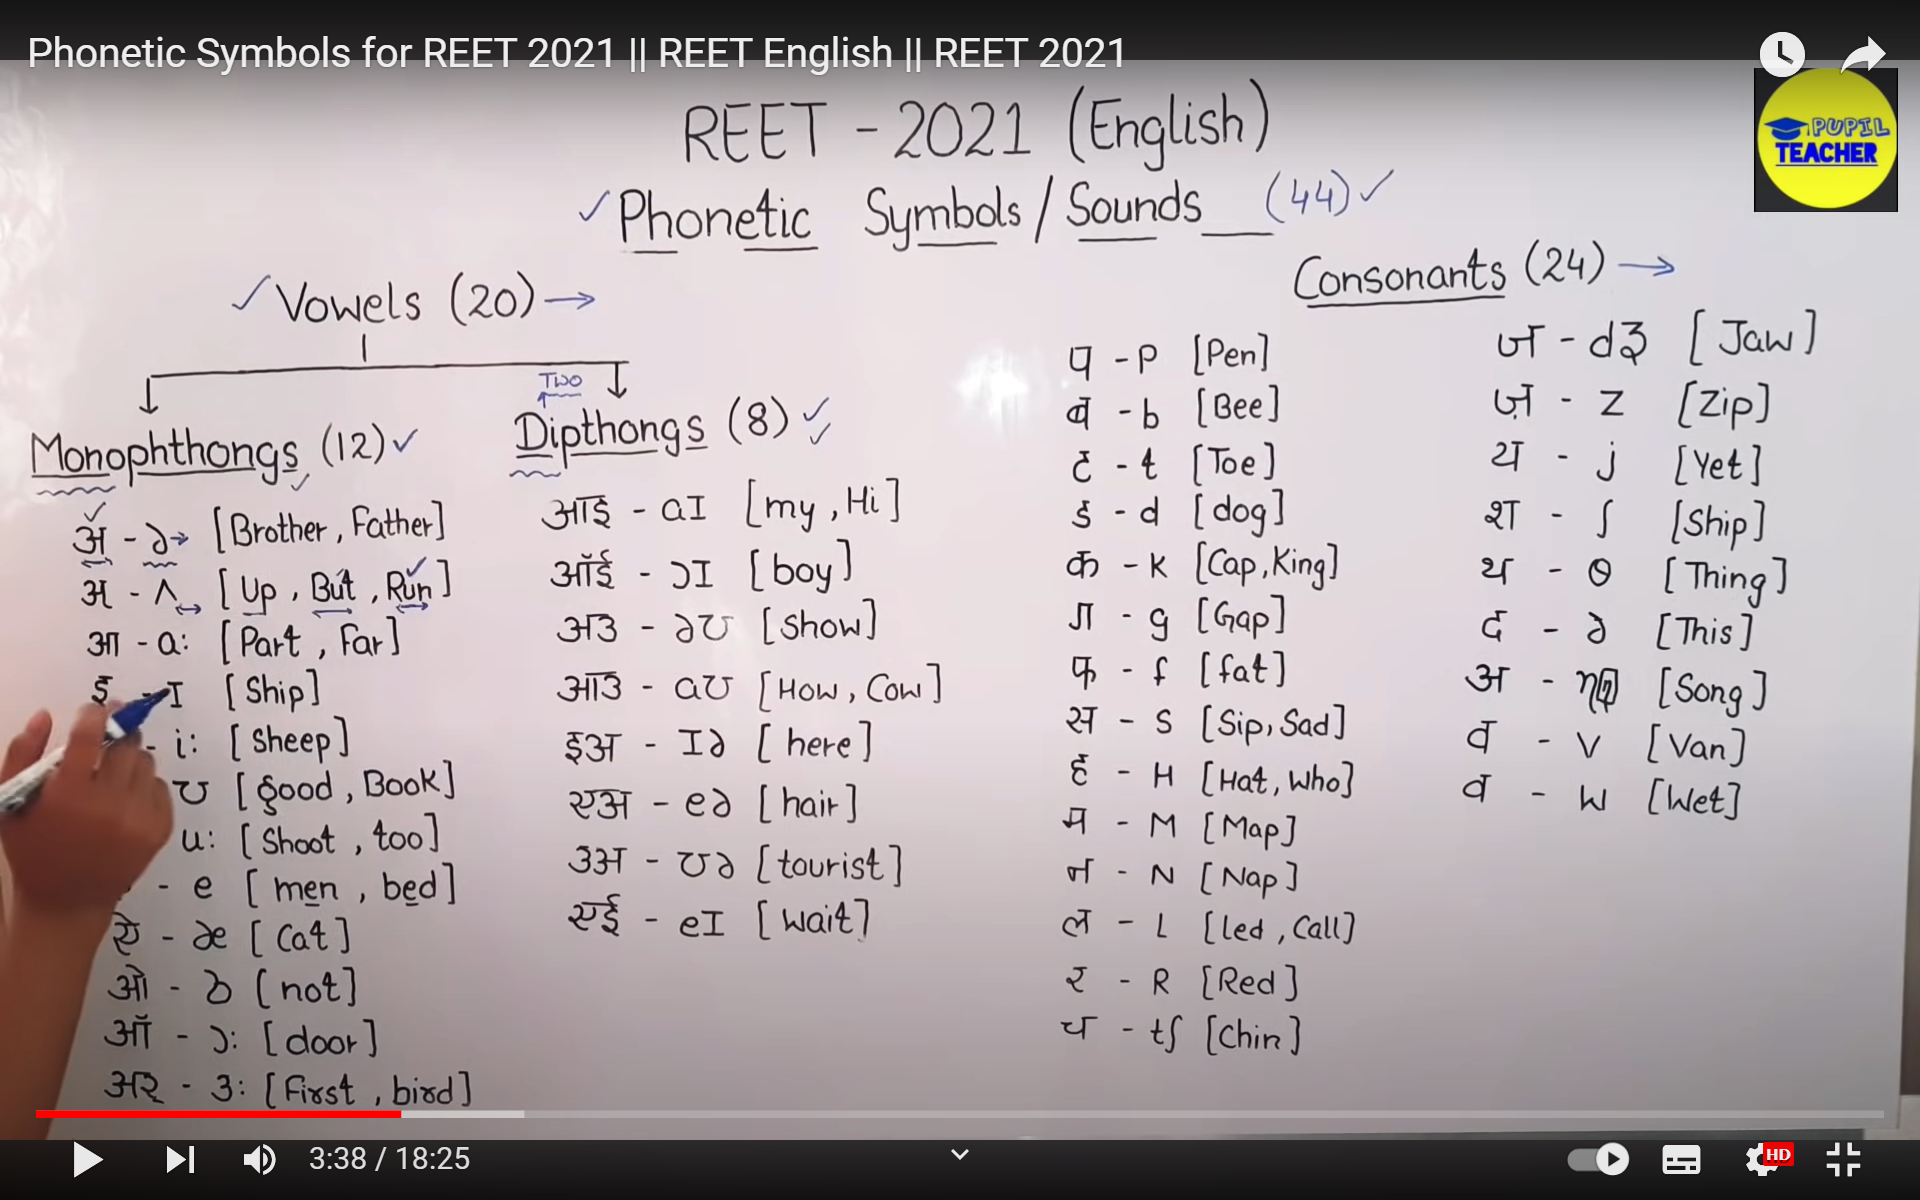 Phonetic Symbols for REET 2021 || REET English || REET 2021
PUPIL
TEACHER
REET - 2021 (English)
✓Phonetic Symbols / Sounds (44)✓
✓Vowels (20)→
Monophthongs (12)✓
अ - ə→ [Brother, Father]
अ - ʌ [Up, But, Run]
आ - a: [Part, Far]
इ - I [Ship]
- i: [Sheep]
ʊ [good, Book]
u: [Shoot, too]
- e [men, bed]
ऐ - æ [Cat]
ओ - ɒ [not]
ऑ - ɔ: [door]
अर् - 3: [First, bird]
Two
Dipthongs (8)✓
आई - aI [my, Hi]
ऑई - ɔI [boy]
अउ - əʊ [Show]
आउ - aʊ [How, Cow]
इअ - Iə [here]
एअ - eə [hair]
उअ - ʊə [tourist]
एई - eI [wait]
Consonants (24)→
प - p [Pen]
ब - b [Bee]
ट - t [Toe]
ड - d [dog]
क - k [Cap, King]
ग - g [Gap]
फ - f [fat]
स - s [Sip, Sad]
ह - H [Hat, Who]
म - M [Map]
न - N [Nap]
ल - L [led, Call]
र - R [Red]
च - tʃ [Chin]
ज - dʒ [Jaw]
ज़ - z [Zip]
य - j [Yet]
श - ʃ [Ship]
थ - θ [Thing]
द - ə [This]
अ - η [Song]
व - v [Van]
व - w [Wet]
3:38 / 18:25
HD